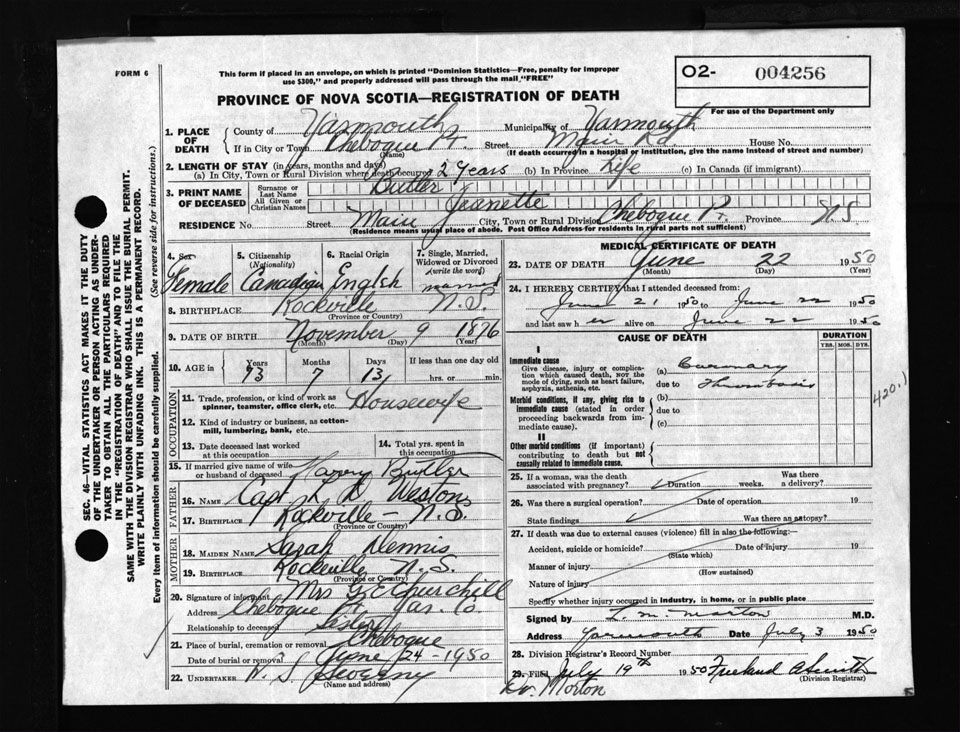 FORM 6
This form if placed in an envelope, on which is printed "Dominion Statistics—Free, penalty for improper
use $300," and properly addressed will pass through the mail "FREE"
O2- 004256
For use of the Department only
PROVINCE OF NOVA SCOTIA—REGISTRATION OF DEATH
1. PLACE OF DEATH
County of Yarmouth Municipality of Yarmouth
If in City or Town Chebogue Pt. (Name) Street Main Rd. House No.
(If death occurred in a hospital or institution, give the name instead of street and number)
2. LENGTH OF STAY (in years, months and days)
(a) In City, Town or Rural Division where death occurred 2 Years (b) In Province Life (c) In Canada (if immigrant)
3. PRINT NAME OF DECEASED
Surname or Last Name Butler
All Given or Christian Names Jeanette
RESIDENCE No. Street Main City, Town or Rural Division Chebogue Pt. Province N.S
(Residence means usual place of abode. Post Office Address for residents in rural parts not sufficient)
4. Sex Female
5. Citizenship (Nationality) Canadian
6. Racial Origin English
7. Single, Married, Widowed or Divorced (write the word) married
8. BIRTHPLACE Rockville N.S. (Province or Country)
9. DATE OF BIRTH November 9 1876 (Month) (Day) (Year)
10. AGE in Years 73 Months 7 Days 13 If less than one day old hrs. or min.
OCCUPATION
11. Trade, profession, or kind of work as spinner, teamster, office clerk, etc. Housewife
12. Kind of industry or business, as cotton-mill, lumbering, bank, etc.
13. Date deceased last worked at this occupation
14. Total yrs. spent in this occupation
15. If married give name of wife or husband of deceased Harry Butler
FATHER
16. NAME Capt. Weston
17. BIRTHPLACE Rockville - N.S. (Province or Country)
MOTHER
18. MAIDEN NAME Sarah Dennis
19. BIRTHPLACE Rockville N.S. (Province or Country)
20. Signature of informant Mrs Churchill
Address Chebogue Pt Yar. Co.
Relationship to deceased Sister
21. Place of burial, cremation or removal Chebogue
Date of burial or removal June 24-1950
22. UNDERTAKER Sweeny (Name and address)
MEDICAL CERTIFICATE OF DEATH
23. DATE OF DEATH June 22 1950 (Month) (Day) (Year)
24. I HEREBY CERTIFY that I attended deceased from:
June 21 1950 to June 22 1950
and last saw her alive on June 22 1950
CAUSE OF DEATH
DURATION
YRS. MOS. DYS.
I
Immediate cause
Give disease, injury or complication which caused death, NOT the mode of dying, such as heart failure, asphyxia, asthenia, etc.
(a) Coronary
due to thrombosis
420.1
Morbid conditions, if any, giving rise to immediate cause (stated in order proceeding backwards from immediate cause).
(b)
due to
(c)
II
Other morbid conditions (if important) contributing to death but not causally related to immediate cause.
25. If a woman, was the death associated with pregnancy? Duration weeks. Was there a delivery?
26. Was there a surgical operation? Date of operation 19
State findings Was there an autopsy?
27. If death was due to external causes (violence) fill in also the following:—
Accident, suicide or homicide? (State which) Date of injury 19
Manner of injury (How sustained)
Nature of injury
Specify whether injury occurred in industry, in home, or in public place
Signed by Morton M.D.
Address Yarmouth Date July 3 1950
28. Division Registrar's Record Number
29. Filed July 19th 1950 Freeland A Smith (Division Registrar)
Dr. Morton
SEC. 46—VITAL STATISTICS ACT MAKES IT THE DUTY
OF THE UNDERTAKER OR PERSON ACTING AS UNDER-
TAKER TO OBTAIN ALL THE PARTICULARS REQUIRED
IN THE "REGISTRATION OF DEATH" AND TO FILE THE
SAME WITH THE DIVISION REGISTRAR WHO SHALL ISSUE THE BURIAL PERMIT.
WRITE PLAINLY WITH UNFADING INK. THIS IS A PERMANENT RECORD.
Every item of information should be carefully supplied. (See reverse side for instructions.)